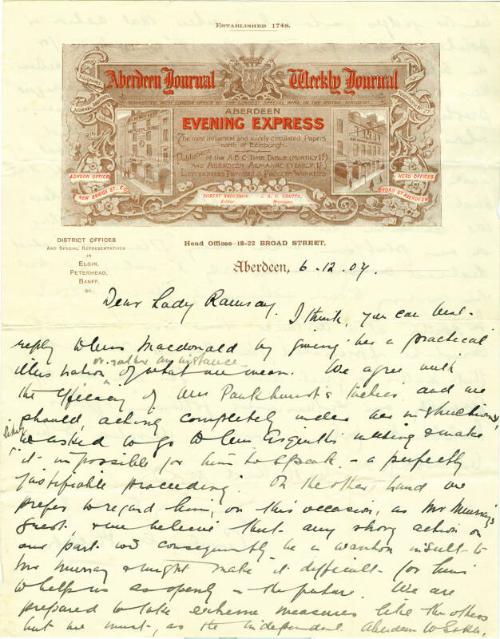 ESTABLISHED 1748.
Aberdeen Journal Weekly Journal
ABERDEEN
EVENING EXPRESS
The most influential and widely circulated Papers
north of Edinburgh
of the A.B.C. Time Table (Monthly 1d)
and Aberdeen Almanac (Yearly
LONDON OFFICE
NEW BRIDGE ST. E.C.
HEAD OFFICES
BROAD ST. ABERDEEN
DISTRICT OFFICES
AND SPECIAL REPRESENTATIVES
IN
ELGIN,
PETERHEAD,
BANFF,
&c.
Head Offices 18-22 BROAD STREET,
Aberdeen, 6.12.07.
Dear Lady Ramsay.
I think, you can best
reply to Miss Macdonald by giving her a practical
illustration or rather an instance of what we mean. We agree with
the efficiency of Mrs Pankhurst's tactics and we
should, acting completely under her instructions,
if asked to go to Mr Asquith's meeting & make
it impossible for him to speak, - a perfectly
justifiable proceeding. On the other hand we
prefer to regard him, on this occasion, as Mr Murray's
guest, & we believe that any strong action on
our part wd consequently be a wanton insult to
Mr Murray & might make it difficult for him
to help us as openly in the future. We are
prepared to take extreme measures like the others
but we must, as the independent Aberdeen W.S.